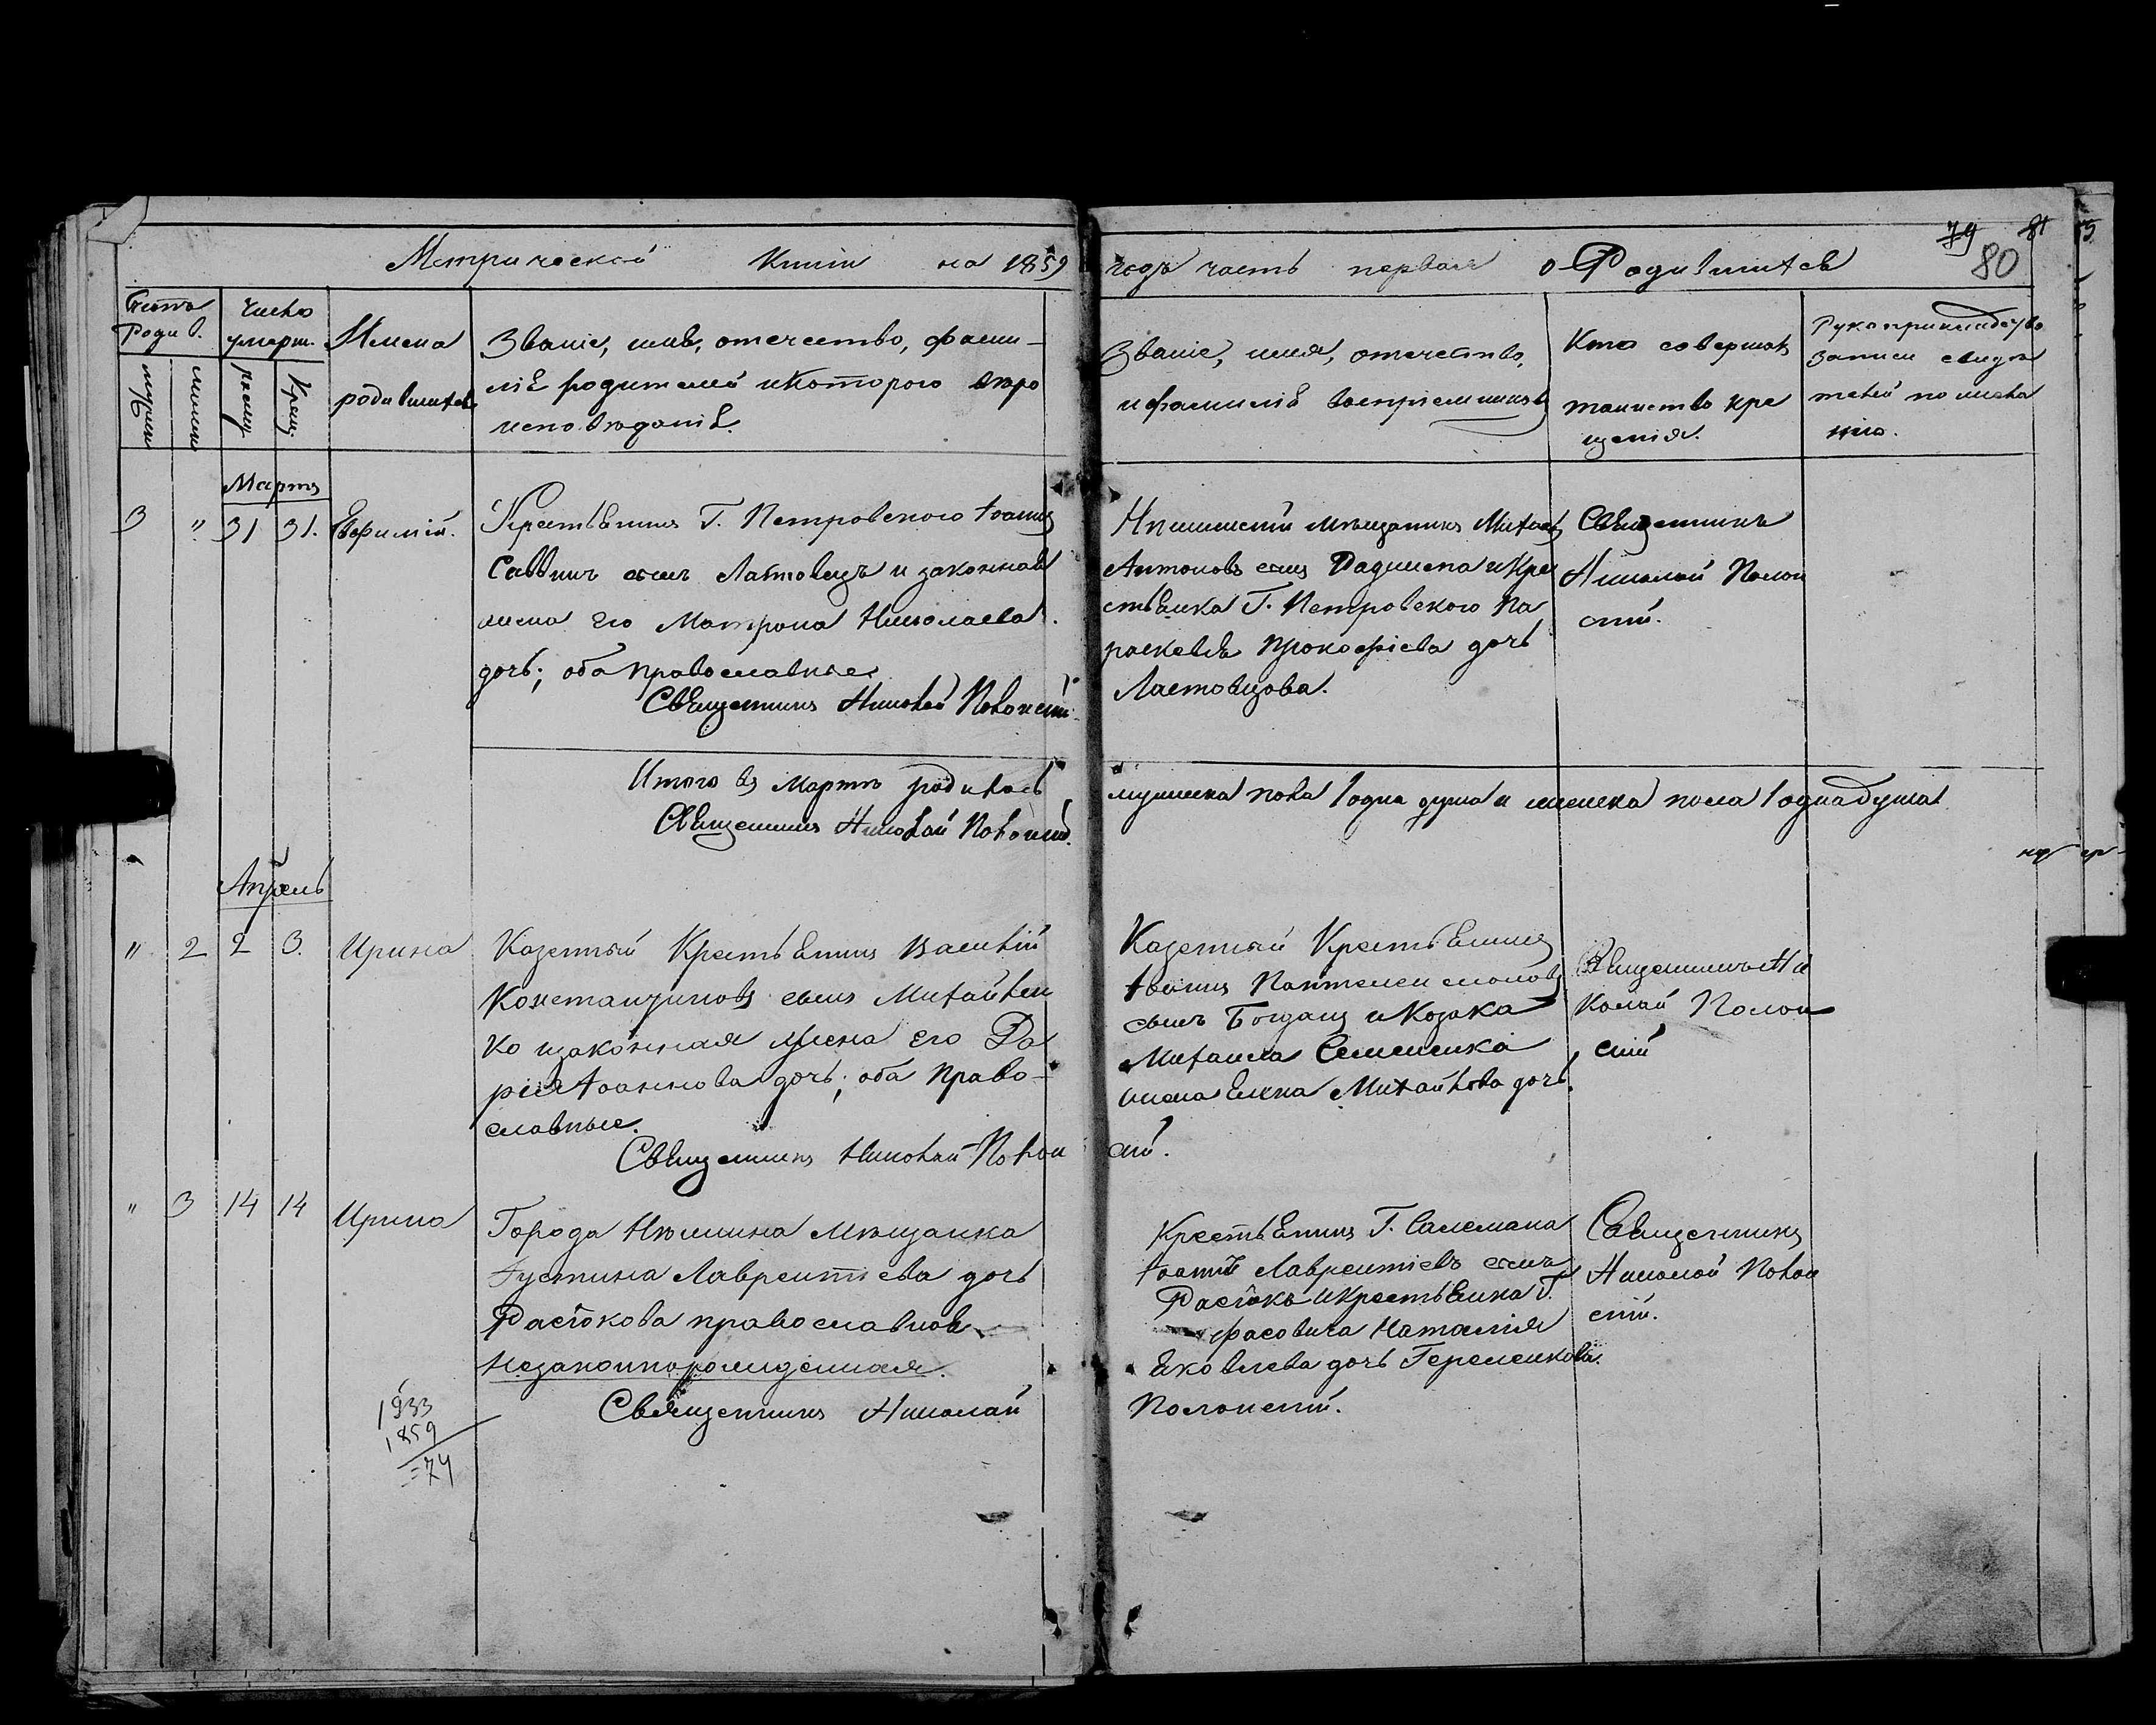 Метрической книги на 1859
годъ часть первая о Родившихся
79 81
80
Счетъ родив.
Число умерш.
Имена родившихся
Званіе, имя, отечество, фами-
ліѣ родителей и которого вѣро
исповѣданіѣ.
Званіе, имя, отечество,
и фамиліѣ воспріемниковъ
Кто совершалъ
таинство кре
щенія.
Рукоприкладство
записи свидѣ
телей по жела
нію.
Мартъ
3 " 31 31. Евфимій.
Крестьянинъ Г. Петровского Іоаннъ
Саввинъ сынъ Ластовецъ и законная
жена его Матрона Николаева
дочь; оба православные
Священникъ Николай Полонскій
Нежинскій мѣщанинъ Михаилъ
Антоновъ сынъ и кре
стьянка Г. Петровского Па
раскевія Прокофіева дочь
Ластовцова.
Священникъ
Николай Полон
скій.
Итого въ Мартѣ родилось
мужеска пола 1 одна душа и женска пола 1 одна душа
Священникъ Николай Полонскій.
Апрѣль
" 2 2 3. Ирина
Казенный Крестьянинъ Василій
Константиновъ сынъ Михайлен
ко и законная жена его Да
рія Іоаннова дочь; оба Право-
славные.
Священникъ Николай Полон
скій.
Казенный Крестьянинъ
Іоаннъ Пантелеимоновъ
сынъ Богданъ и Козака
Михаила Семененка
жена Елена Михайлова дочь
Священникъ Ни
колай Полон
скій
" 3 14 14 Ирина
Города Нѣжина Мѣщанка
Іустина Лаврентіева дочь
Растокова православная
Незаконнорожденная.
Священникъ Николай
Полонскій.
Крестьянинъ Г.
Іоаннъ Лаврентіевъ сынъ
Растокъ и крестьянка Г.
Наталія
Яковлева дочь Геременкова.
Священникъ
Николай Полон
скій.
1933
1859
=74